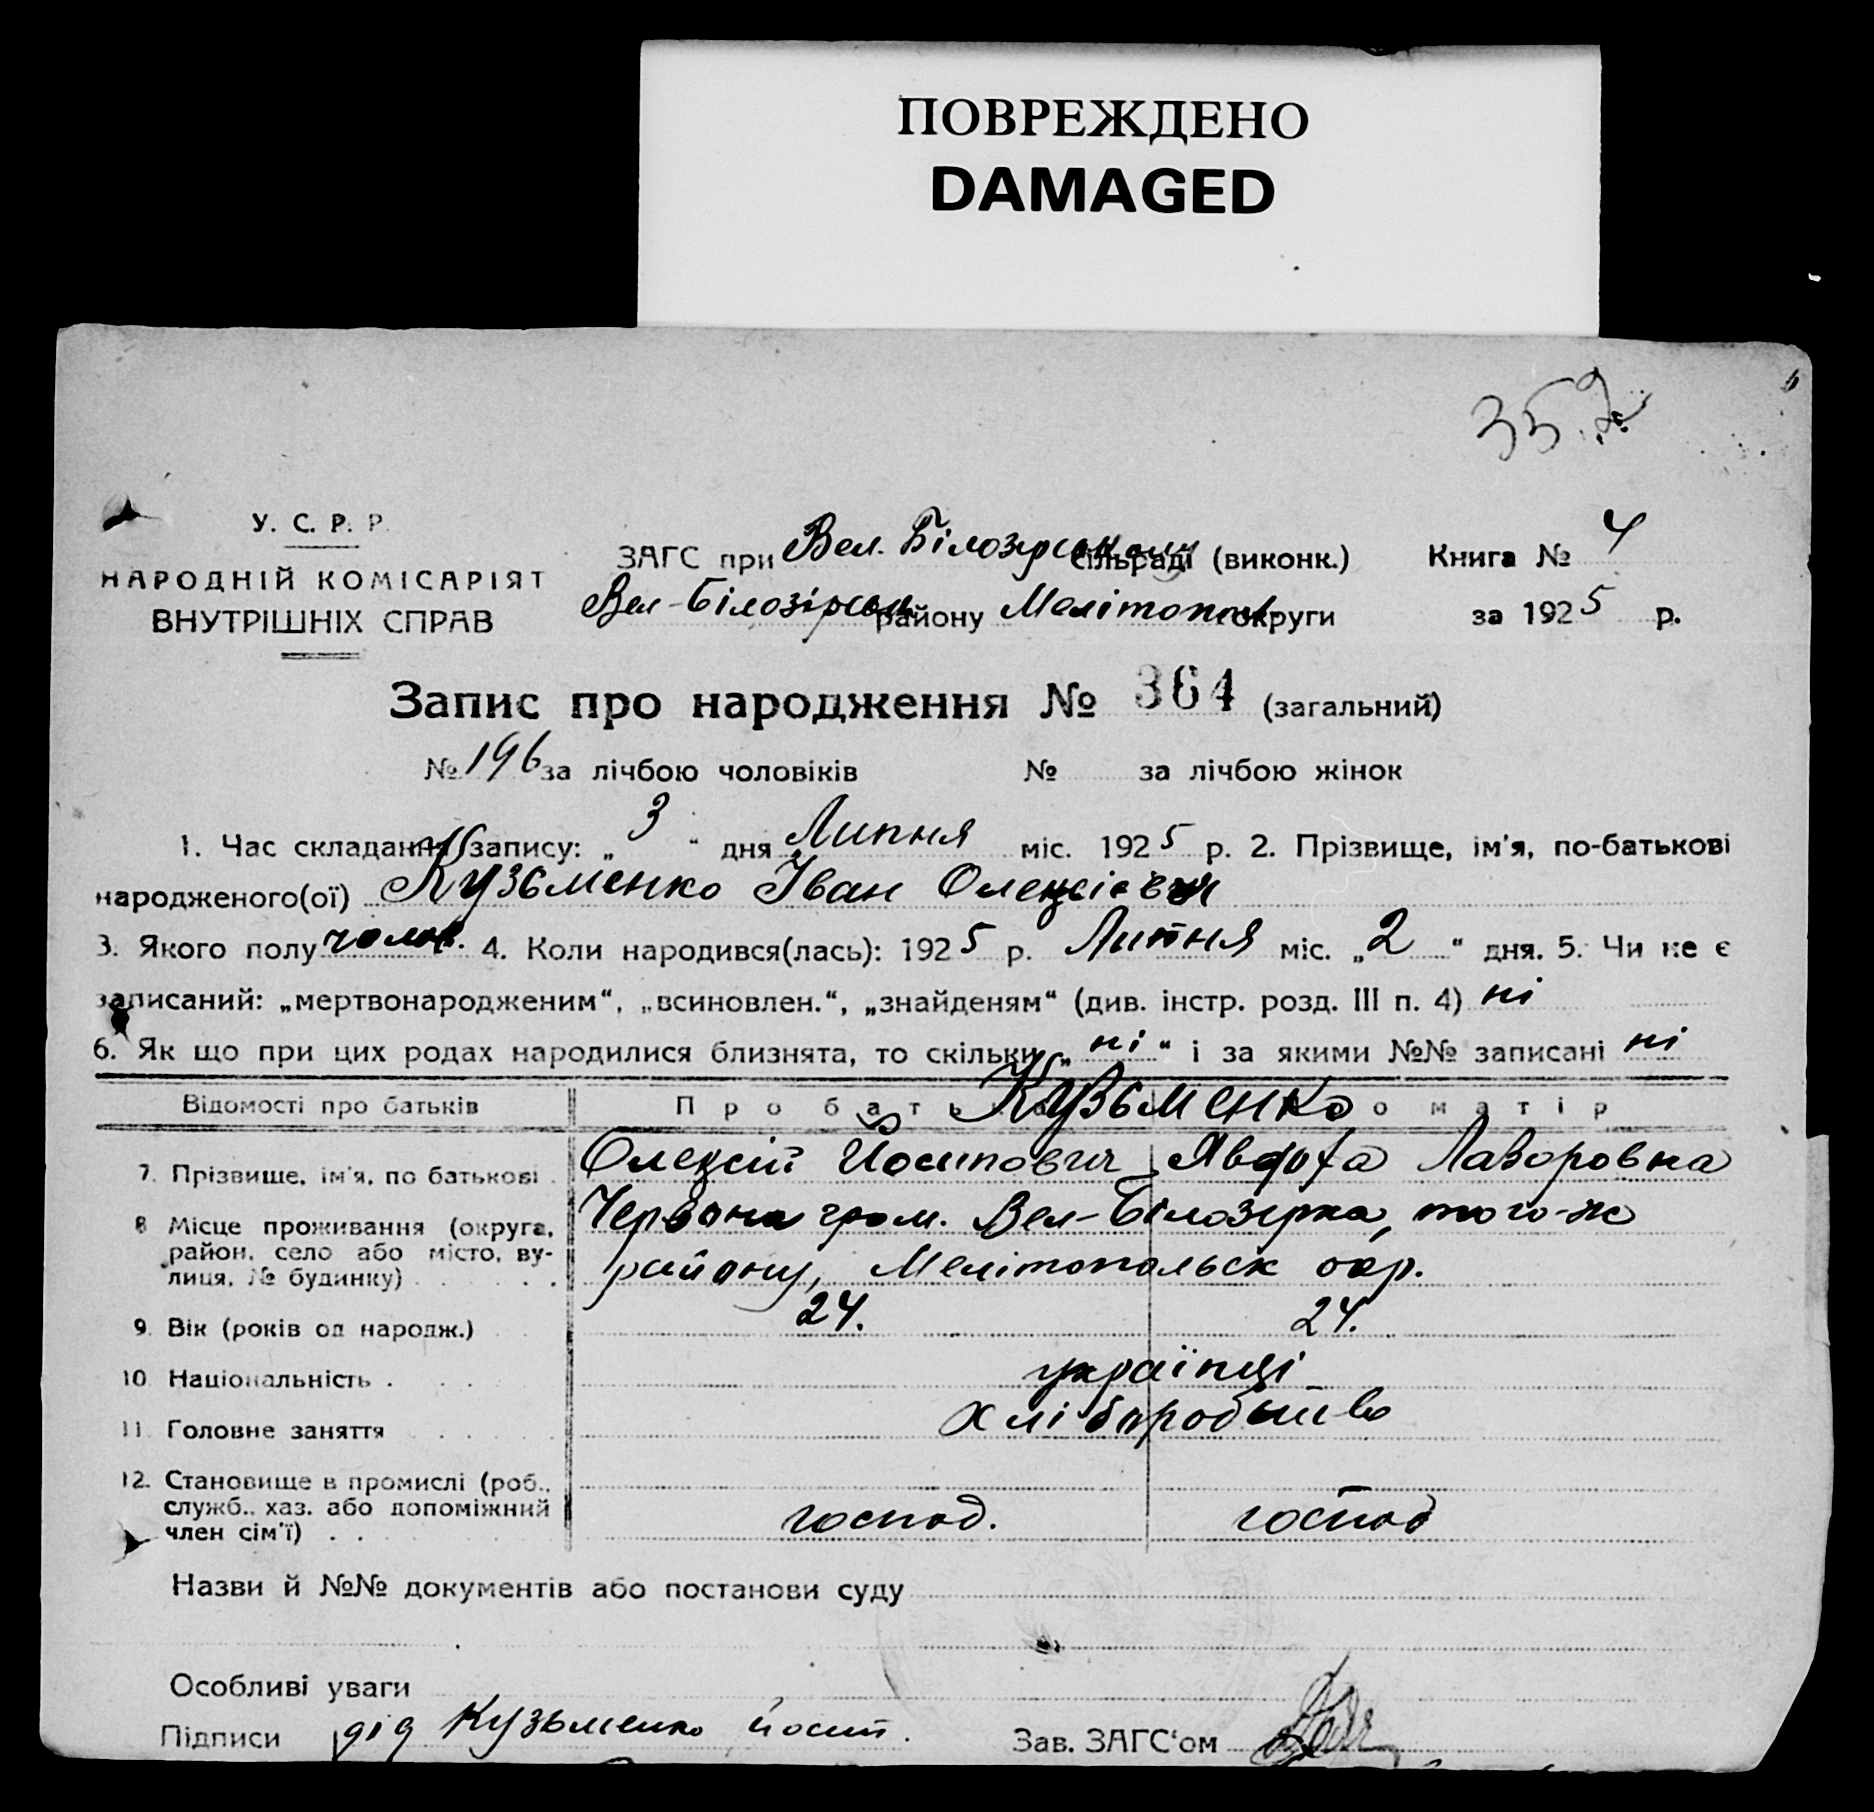 ПОВРЕЖДЕНО
DAMAGED
У. С. Р. Р.
НАРОДНІЙ КОМІСАРІЯТ
ВНУТРІШНІХ СПРАВ
ЗАГС при Вел. Білозірському сільраді (виконк.) Книга № 4
Вел-Білозірськ району Мелітопол округи за 1925 р.
Запис про народження № 364 (загальний)
№ 196 за лічбою чоловіків № за лічбою жінок
1. Час складання запису: „ 3 " дня Липня міс. 1925 р. 2. Прізвище, ім'я, по-батькові
народженого(ої) Кузьменко Іван Олексієвич
3. Якого полу чолов. 4. Коли народився(лась): 1925 р. Липня міс. „2" дня. 5. Чи не є
записаний: „мертвонародженим“, „всиновлен.“, „знайденям“ (див. інстр. розд. III п. 4) ні
6. Як що при цих родах народилися близнята, то скільки „ ні “ і за якими №№ записані ні
Відомості про батьків Про батька Про матір
Кузьменко
7. Прізвище, ім'я, по батькові . Олексій Йосипович Явдоха Лаворовна
8 Місце проживання (округа, Червона гром. Вел-Білозірка, того-ж
район, село або місто, ву-
лиця, № будинку) . . . . . району, Мелітопольск окр.
9. Вік (років од народж.) 24. 24.
10 Національність . українці
11. Головне заняття хліборобство
12. Становище в промислі (роб.,
служб., хаз. або допоміжний
член сім'ї) . . господ. господ
Назви й №№ документів або постанови суду
Особливі уваги
Підписи дід Кузьменко Йосип. Зав. ЗАГС'ом